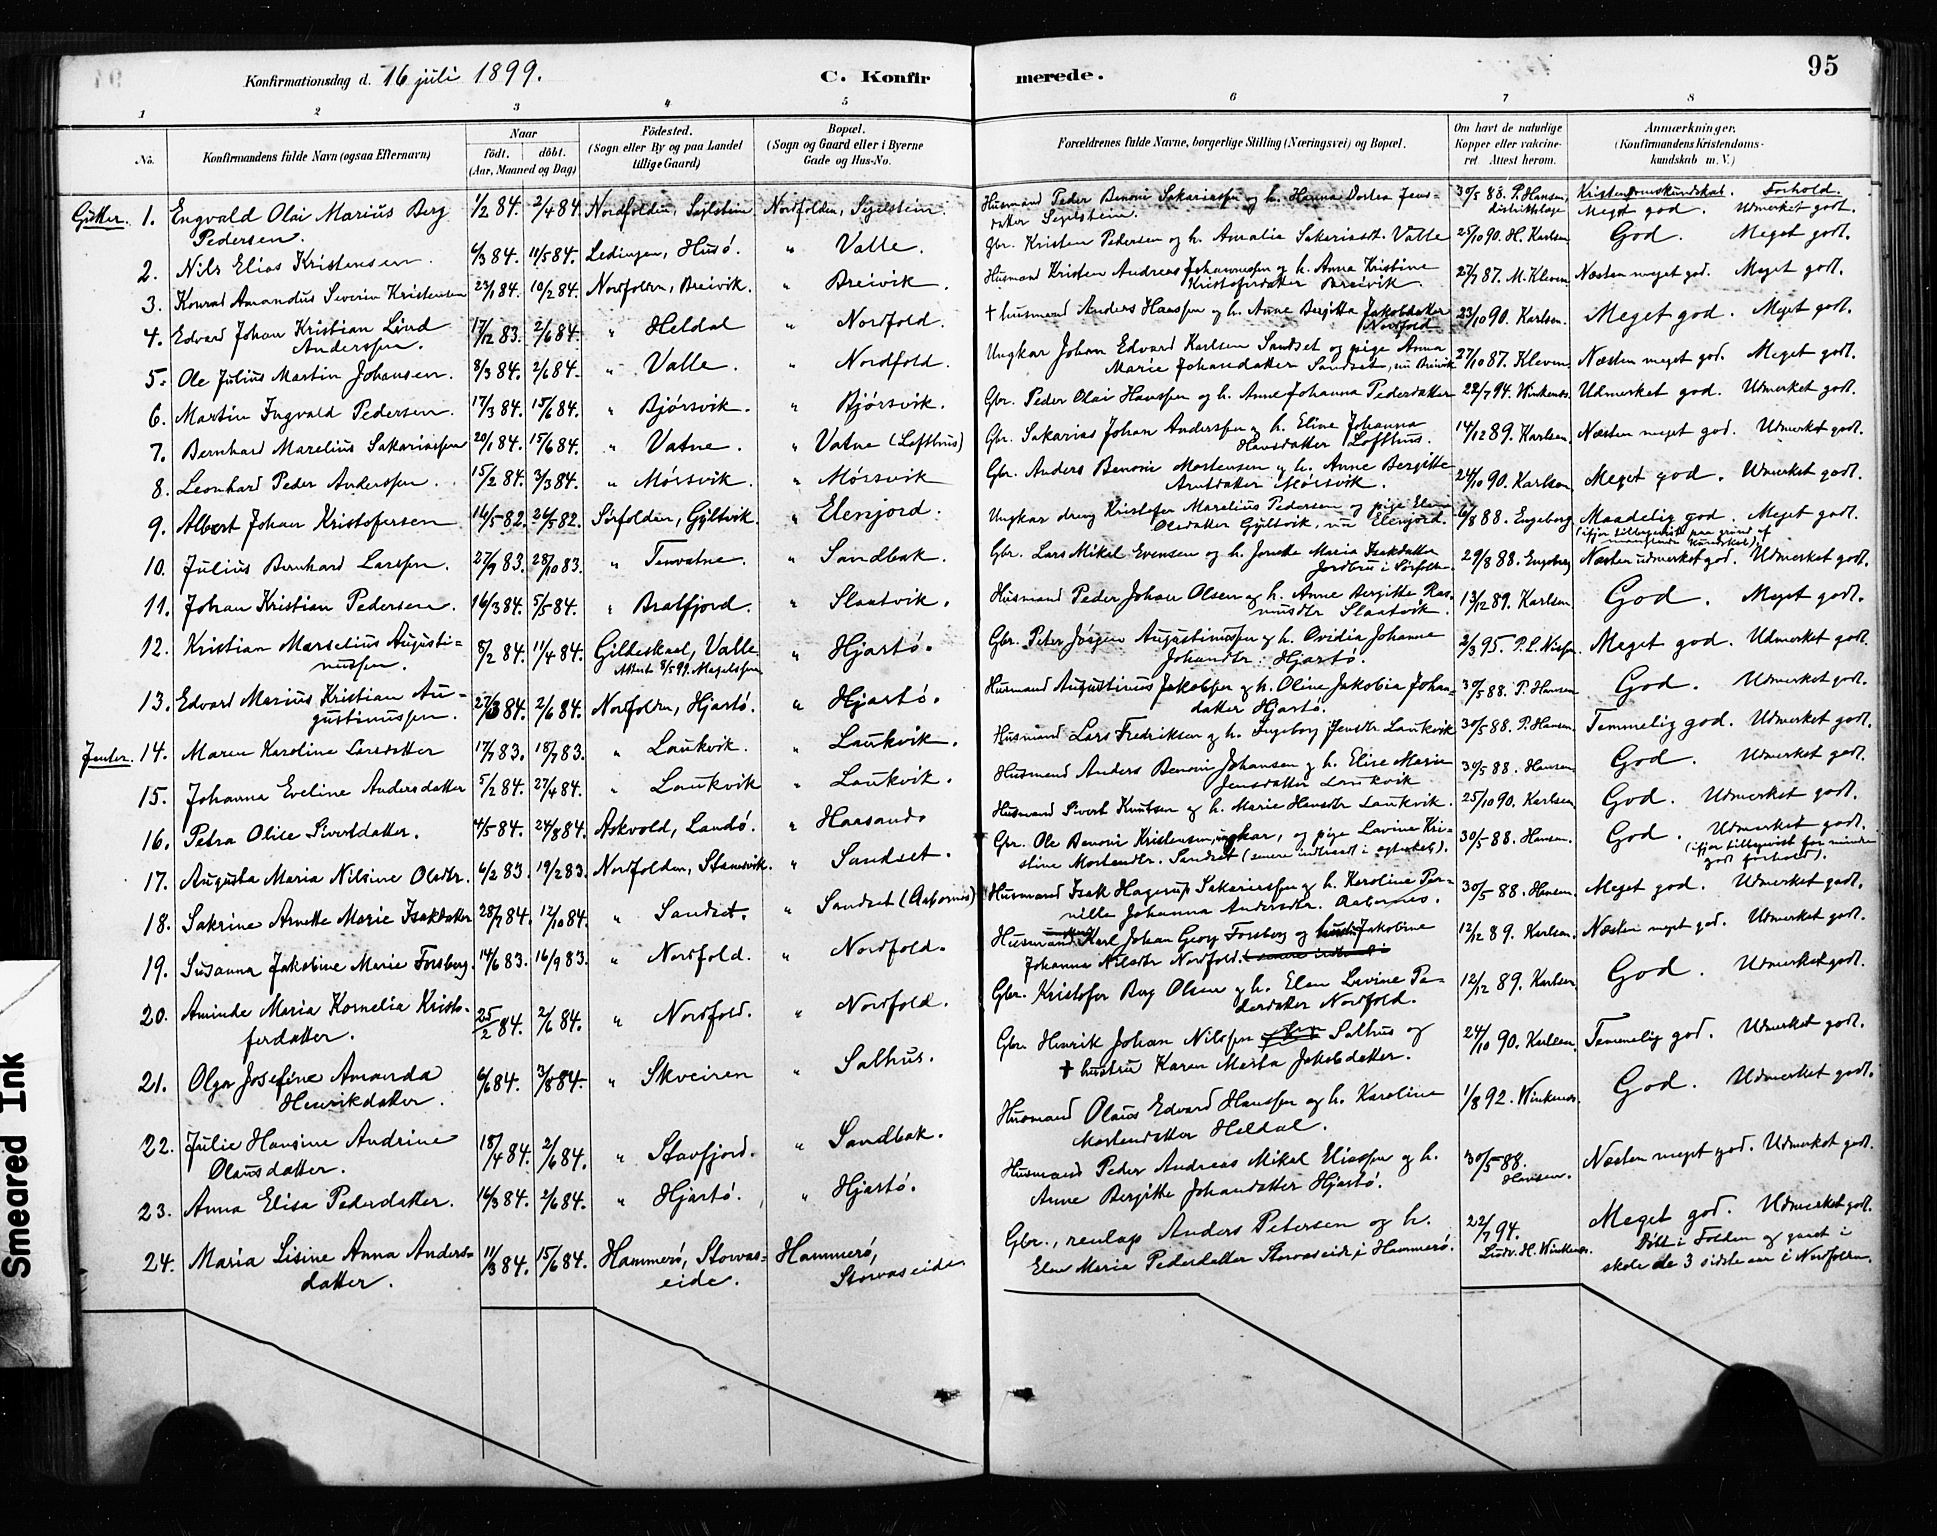 Konfirmationsdag d. 16 juli 1899.
C. Konfirmerede.
95
1 2 3 4 5 6 7 8
No.
Konfirmandens fulde Navn (ogsaa Efternavn)
Naar
födt. döbt.
(Aar, Maaned og Dag)
Födested.
(Sogn eller By og paa Landet
tillige Gaard)
Bopæl.
(Sogn og Gaard eller i Byerne
Gade og Hus-No.
Forældrenes fulde Navne, borgerlige Stilling (Næringsvei) og Bopæl.
Om havt de naturlige
Kopper eller vakcine-
ret Attest herom.
Anmærkninger.
(Konfirmandens Kristendoms-
kundskab m. V.)
Kristendomskundskab. Forhold.
Gutter. 1. Engvald Olai Marius Berg 1/2 84. 2/4 84. Nordfolden, Segelstein Nordfolden, Segelstein. Husmand Peder Benoni Sakariassen og h. Hanna Dortea Jens- 30/5 88. P. Hansen, Meget god. Udmerket godt.
Pedersen. datter Segelstein. distriktslæge
2. Nils Elias Kristensen. 6/3 84. 11/5 84. Lødingen, Husö. " Valle. Gbr. Kristen Pedersen og h. Amalia Sakariasdt. Valle 25/10 90. H. Karlsen God. Meget godt.
3. Konrad Amandus Severin Kristensen 23/1 84. 10/2 84. Nordfolden, Breivik. " Breivik. Husmand Kristen Andreas Johannessen og h. Anna Kristine 27/7 87. M. Kleven Næsten meget god. Meget godt.
Kristofersdatter Breivik.
4. Edvard Johan Kristian Lind 17/12 83. 2/6 84. " Heldal " Nordfold. † husmand Anders Hanssen og h. Anne Bergitta Jakobsdatter 23/10 90. Karlsen. Meget god. Meget godt.
Anderssen. Nordfold
5. Ole Julius Martin Johansen. 8/3 84. 2/6 84. " Valle. " Nordfold. Ungkar Johan Edvard Karlsen Sandset og pige Anna 27/10 87. Kleven. Næsten meget god. Meget godt.
Marie Johansdatter Sandset, nu Breivik
6. Martin Ingvald Pedersen. 17/3 84. 15/6 84. " Bjórsvik. " Bjórsvik. Gbr. Peder Olai Hanssen og h. Anne Johanna Pedersdatter 22/7 94. Winkenes. Udmerket god. Udmerket godt.
7. Bernhard Marelius Sakariassen 20/1 84. 15/6 84. " Vatne. " Vatne (Lofthus) Gbr. Sakarias Johan Anderssen og h. Eline Johanna 14/12 89. Karlsen. Næsten meget god. Udmerket godt.
Hansdatter Lofthus.
8. Leonhard Peder Anderssen. 15/2 84. 3/3 84. " Mórsvik. " Mórsvik Gbr. Anders Benoni Mortensen og h. Anne Bergitte 24/10 90. Karlsen. Meget god. Udmerket godt.
Arntsdatter Mórsvik.
9. Albert Johan Kristofersen 16/5 82. 26/5 82. Sörfolden, Gyltvik. " Elenjord. Ungkar dreng Kristofer Marelius Pedersen og pige Elen 16/8 88. Engeberg Maadelig god. Meget godt.
Olsdatter Gyltvik, nu Elenjord. (ifjor tilbagevist paa grund af manglende kundskab).
10. Julius Bernhard Larssen. 27/9 83. 28/10 83. " Tenvatne. " Sandbak. Gbr. Lars Mikal Evensen og h. Jonette Maria Isakdatter 29/8 88. Engeberg Næsten udmerket god. Udmerket godt.
Jordbru i Sörfolden.
11. Johan Kristian Pedersen. 16/3 84. 5/5 84. " Bratfjord. " Slaatvik. Husmand Peder Johan Olsen og h. Anne Bergitte Ras- 13/12 89. Karlsen. God. Meget godt.
musdtr Slaatvik.
12. Kristian Marselius Augusti- 8/2 84. 11/4 84. Gildeskaal, Valle " Hjartö. Gbr. Peter Jörgen Augustinussen og h. Ovidia Johanna 2/3 95. P. L. Nissen. Meget god. Udmerket godt.
nussen. Attest 8/5 99. Magelssen Johansdtr. Hjartö.
13. Edvard Marius Kristian Au- 27/3 84. 2/6 84. Nordfolden, Hjartö. " Hjartö. Husmand Augustinus Jakobsen og h. Oline Jakobia Johan- 30/5 88. P. Hansen God. Udmerket godt.
gustinussen. datter Hjartö.
Jenter. 14. Maren Karoline Larsdatter 17/7 83. 18/7 83. " Laukvik. " Laukvik. Husmand Lars Fredriksen og h. Ingeborg Jensdtr Laukvik 30/5 88. P. Hansen. Temmelig god. Udmerket godt.
15. Johanna Eveline Andersdatter 5/2 84. 27/4 84. " Laukvik " Laukvik. Husmand Anders Benoni Johansen og h. Elise Marie 30/5 88. Hansen God. Udmerket godt.
Jensdatter Laukvik
16. Petra Olise Sivertdatter. 4/5 84. 24/8 84. Askvold, Landö. " Haasand. Husmand Sivert Knutsen og h. Marie Hansdtr Laukvik. 25/10 90. Karlsen. God. Udmerket godt.
17. Augusta Maria Nilsine Olsdtr. 6/2 83. 19/2 83. Nordfolden, Stamsvik. " Sandset. Gbr. Ole Benoni Kristensen, ungkar, og pige Lavine Kri- 30/5 88. Hansen. God. Udmerket godt.
stine Mortensdtr. Sandset (senere indtraadt i egteskab). (ifjor tilbagevist for mindre godt forhold).
18. Sakrine Arnette Marie Isakdatter 28/7 84. 12/10 84. " Sandset. " Sandset (Aabornes) Husmand Isak Hagerup Sakariassen og h. Karoline Per- 30/5 88. Hansen. Meget god. Udmerket godt.
nille Johanna Andersdtr. Aabornes.
19. Susanna Jakobine Marie Forsberg. 14/6 83. 16/9 83. " Nordfold. " Nordfold. Husmand Karl Johan Georg Forsberg og hustru Jakobine 12/12 89. Karlsen. Næsten meget god. Udmerket godt.
Johanna Nilsdtr Nordfold.
20. Aminde Maria Kornelia Kristo- 25/2 84. 2/6 84. " Nordfold. " Nordfold. Gbr. Kristofer Berg Olsen og h. Elen Lovine Pe- 12/12 89. Karlsen God. Udmerket godt.
ferdatter. dersdatter Nordfold.
21. Olga Josefine Amanda 6/6 84. 3/8 84. " Skveiren " Salhus. Gbr. Henrik Johan Nilssen Salhus og 24/10 90. Karlsen. Temmelig god. Udmerket godt.
Henrikdatter. † hustru Karen Marta Jakobsdatter.
22. Julie Hansine Andrine 18/4 84. 2/6 84. " Stavfjord. " Sandbak. Husmand Olaus Edvard Hanssen og h. Karoline 1/8 92. Winkenes. God. Udmerket godt.
Olausdatter. Mortensdatter Heldal.
23. Anna Elisa Pedersdatter. 16/3 84. 2/6 84. " Hjartö. " Hjartö. Husmand Peder Andreas Mikal Eliassen og h. 30/5 88. Næsten meget god. Udmerket godt.
Anne Bergitte Johansdatter Hjartö. Hansen.
24. Maria Lisine Anna Anders- 11/3 84. 15/6 84. Hammerö, Storvas- Hammerö, Gbr., renlap Anders Petersen og h. 22/7 94. Meget god. Udmerket godt.
datter. eide. Storvaseide Elen Maria Pedersdatter Storvaseide i Hammerö. Ludv. H. Winkenes. Döbt i Folden og gaaet i
skole de 3 sidste aar i Nordfolden.
Smeared Ink